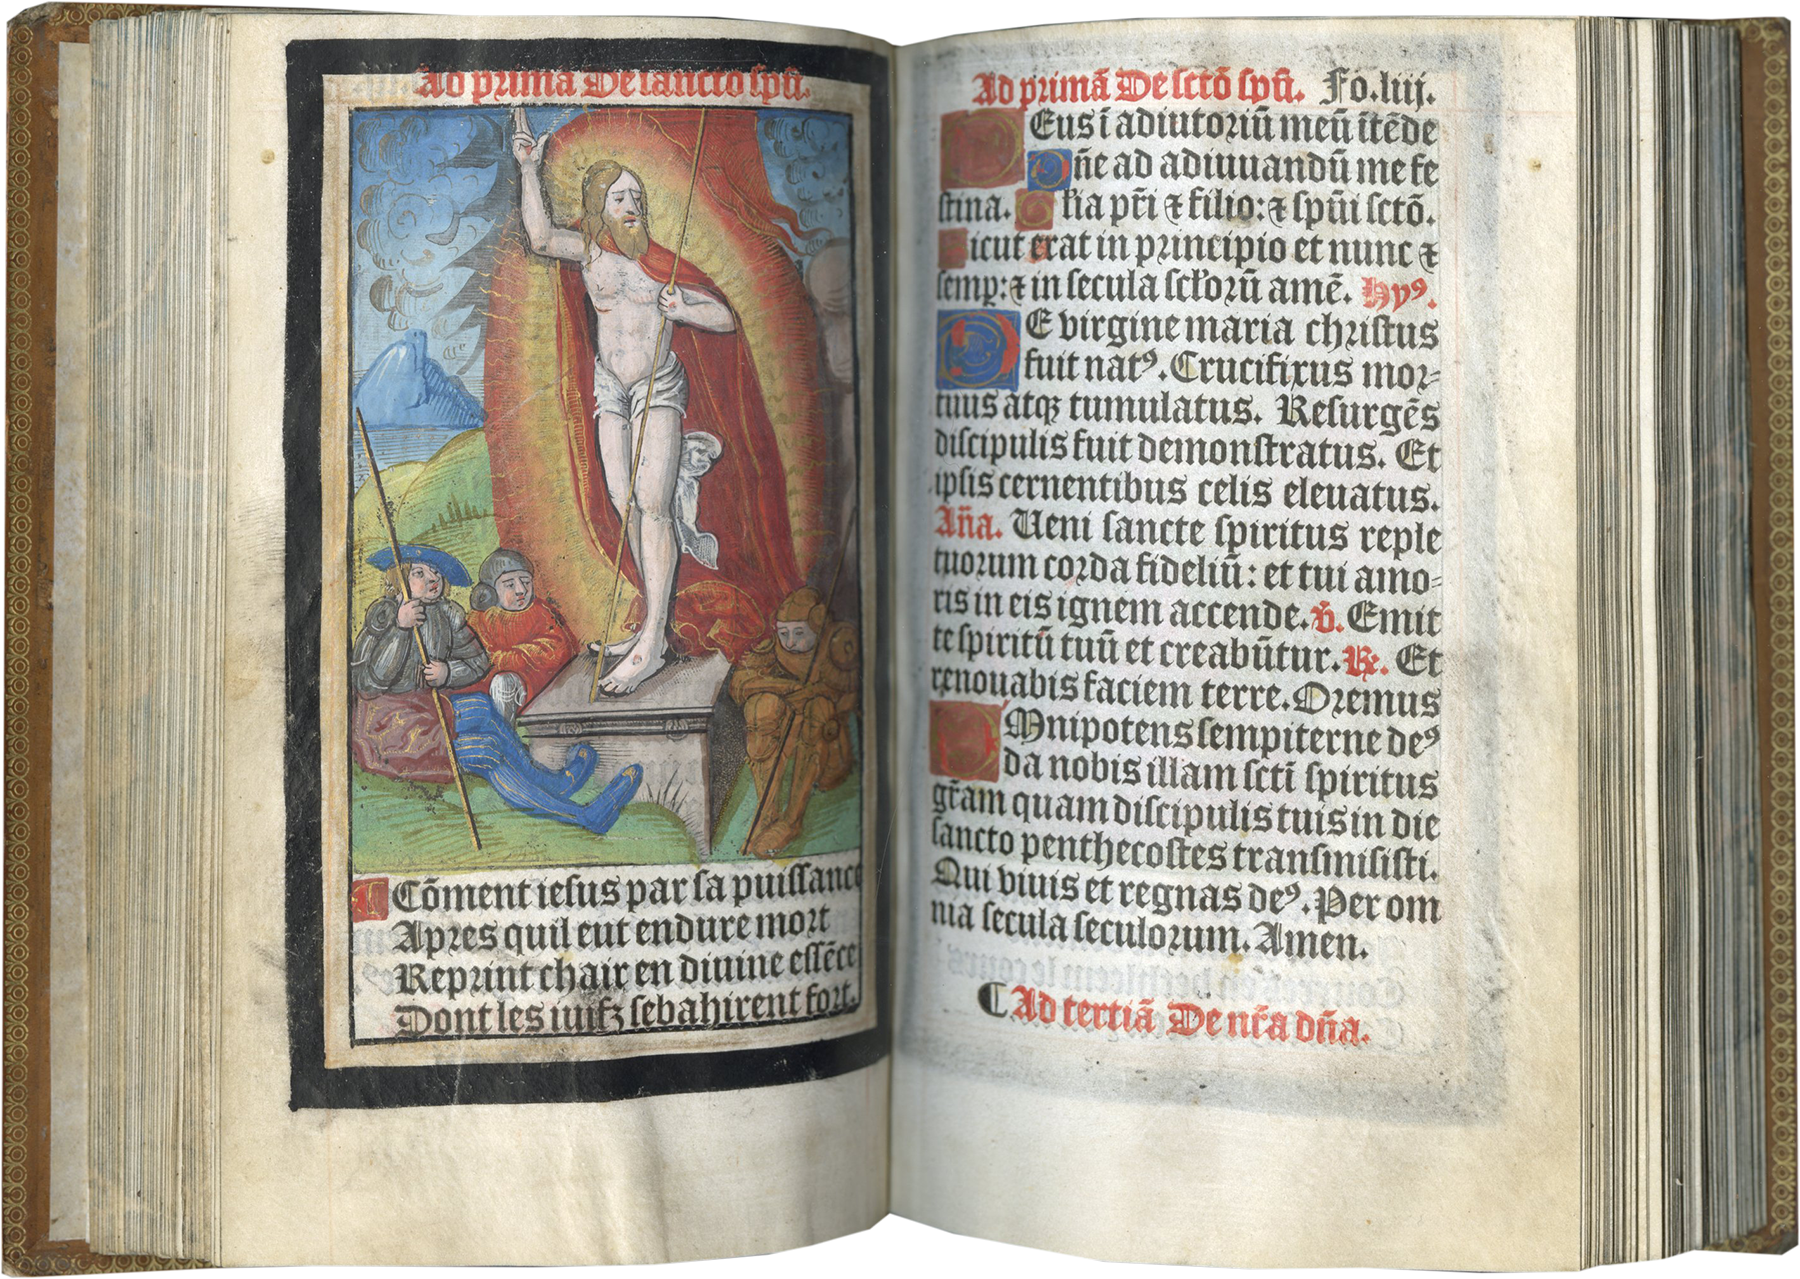 Ad primā De sancto spū.
Cōment iesus par sa puissance
Apres quil eut endure mort
Reprint chair en diuine essēce
Dont les iuifz sebahirent fort.
Ad primā De sctō spū. Fo.liij.
DEus ī adiutoriū meū ītēde
Dñe ad adiuuandū me fe
stina. Glīa prī ⁊ filio: ⁊ spūi sctō.
Sicut erat in principio et nunc ⁊
semp: ⁊ in secula sclorū amē. Hyꝰ.
DE virgine maria christus
fuit natꝰ. Crucifixus mor⸗
tuus atqꝫ tumulatus. Resurgēs
discipulis fuit demonstratus. Et
ipsis cernentibus celis eleuatus.
Aña. Ueni sancte spiritus reple
tuorum corda fideliū: et tui amo⸗
ris in eis ignem accende. v̄. Emit
te spiritū tuū et creabūtur. ℞. Et
renouabis faciem terre. Oremus
OMnipotens sempiterne deꝰ
da nobis illam sctī spiritus
gr̄am quam discipulis tuis in die
sancto penthecostes transmisisti.
Qui viuis et regnas deꝰ. Per om
nia secula seculorum. Amen.
Ad tertiā De nr̄a dña.